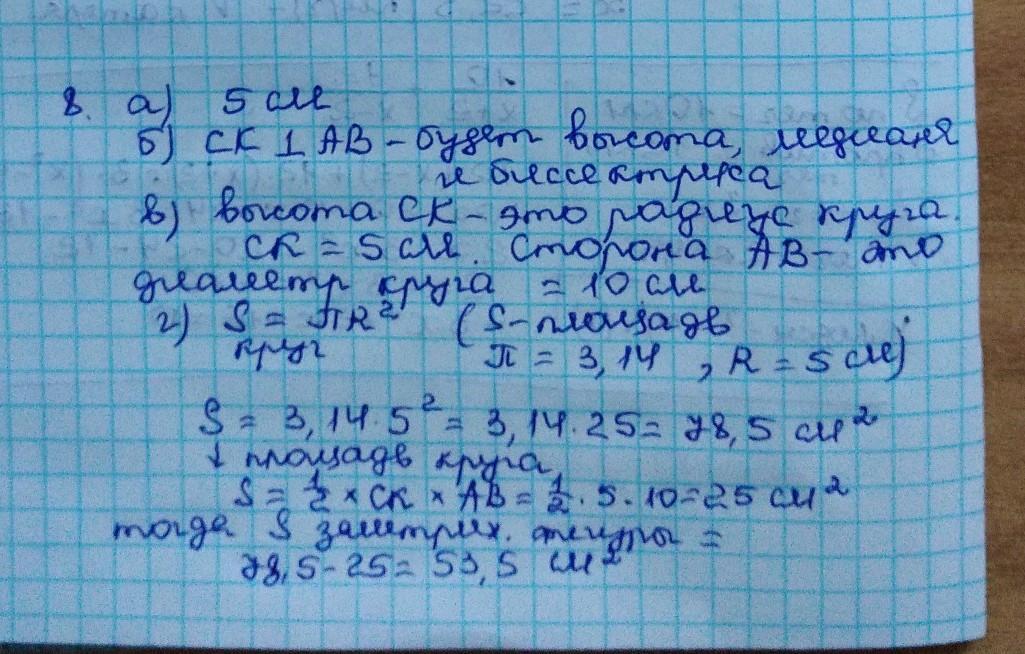 8. а) 5 см
б) СК ⊥ АВ – будет высота, медиана
и биссектриса
в) высота СК – это радиус круга.
СК = 5 см. Сторона АВ – это
диаметр круга = 10 см
г) S = πR² (S – площадь
круг π = 3,14 , R = 5 см)
S = 3,14 · 5² = 3,14 · 25 = 78,5 см²
↓ площадь круга
S = ½ × СК × АВ = ½ · 5 · 10 = 25 см²
тогда S заштрих. фигуры =
78,5 - 25 = 53,5 см²